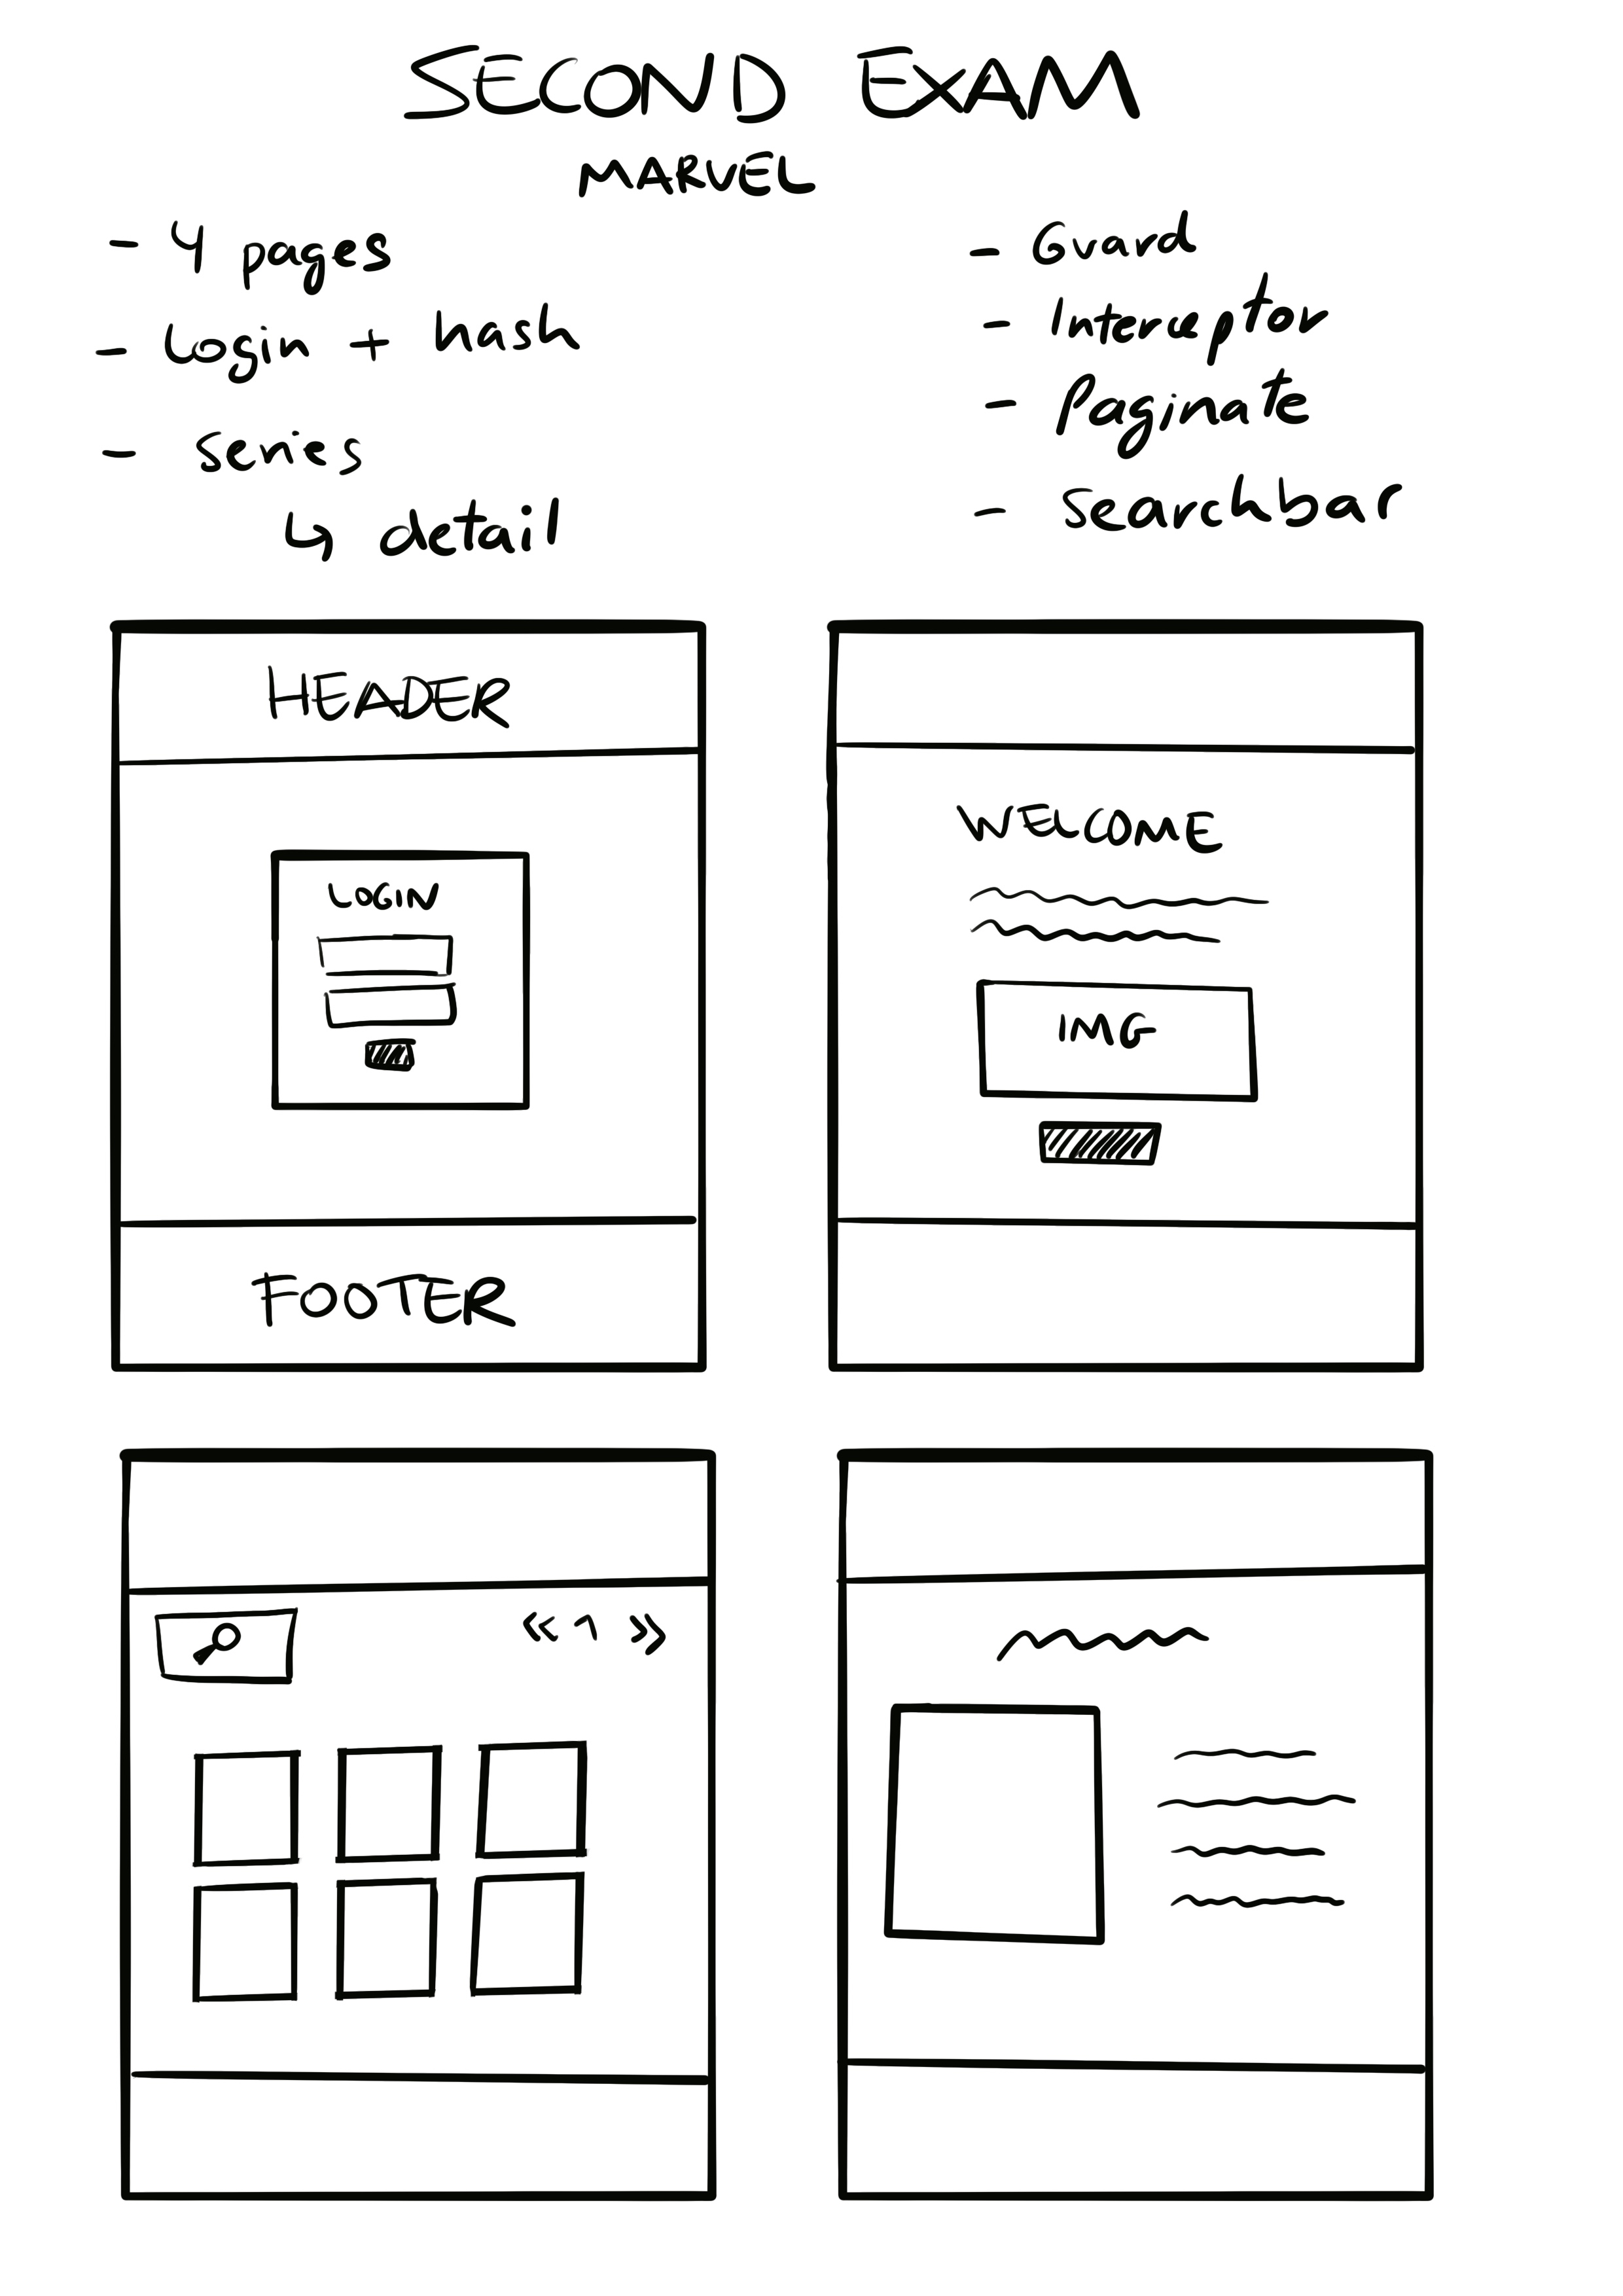 SECOND EXAM
MARVEL
- 4 pages
- Login + hash
- Series
↳ detail
- Guard
- Interceptor
- Paginate
- Searchbar
HEADER
LOGIN
FOOTER
WELCOME
IMG
<< 1 >>